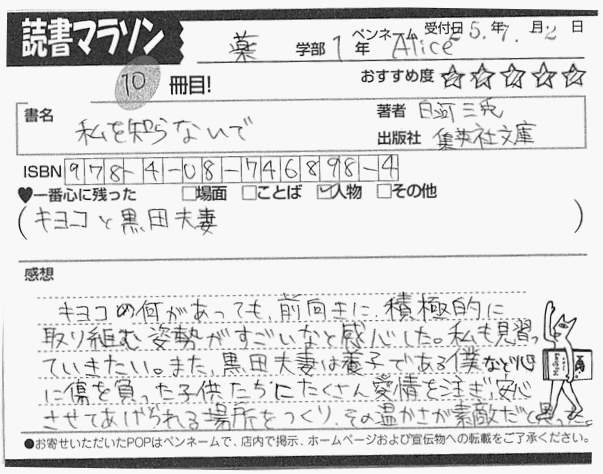 読書マラソン
薬 学部 1 年 ペンネーム Alice 受付日 5. 年 7. 月 2 日
10 冊目! おすすめ度 ☆☆☆☆☆
書名 私を知らないで 著者 白河三兎
出版社 集英社文庫
ISBN 978-4-08-746898-4
♥一番心に残った □場面 □ことば ☑人物 □その他
(キヨコと黒田夫妻)
感想
キヨコの何があっても、前向きに、積極的に
取り組む姿勢がすごいなと感心した。私も見習っ
ていきたい。また、黒田夫妻は養子である僕など心
に傷を負った子供たちにたくさん愛情を注ぎ、安心
させてあげられる場所をつくり、その温かさが素敵だと思った。
●お寄せいただいたPOPはペンネームで、店内で掲示、ホームページおよび宣伝物への転載をご了承ください。